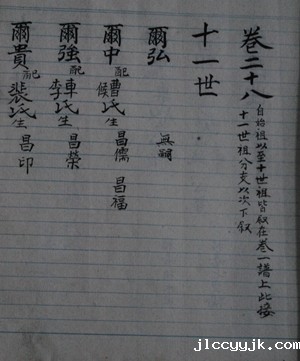 卷二十八
自始祖以至十世祖皆叙在卷一譜上此接
十一世祖分支以次下叙
十一世
爾弘 無嗣
爾中 配 曹氏 侯氏 生 昌儒 昌福
爾強 配 車氏 李氏 生 昌榮
爾貴 配 裴氏 生 昌印
jlccyyjk.com